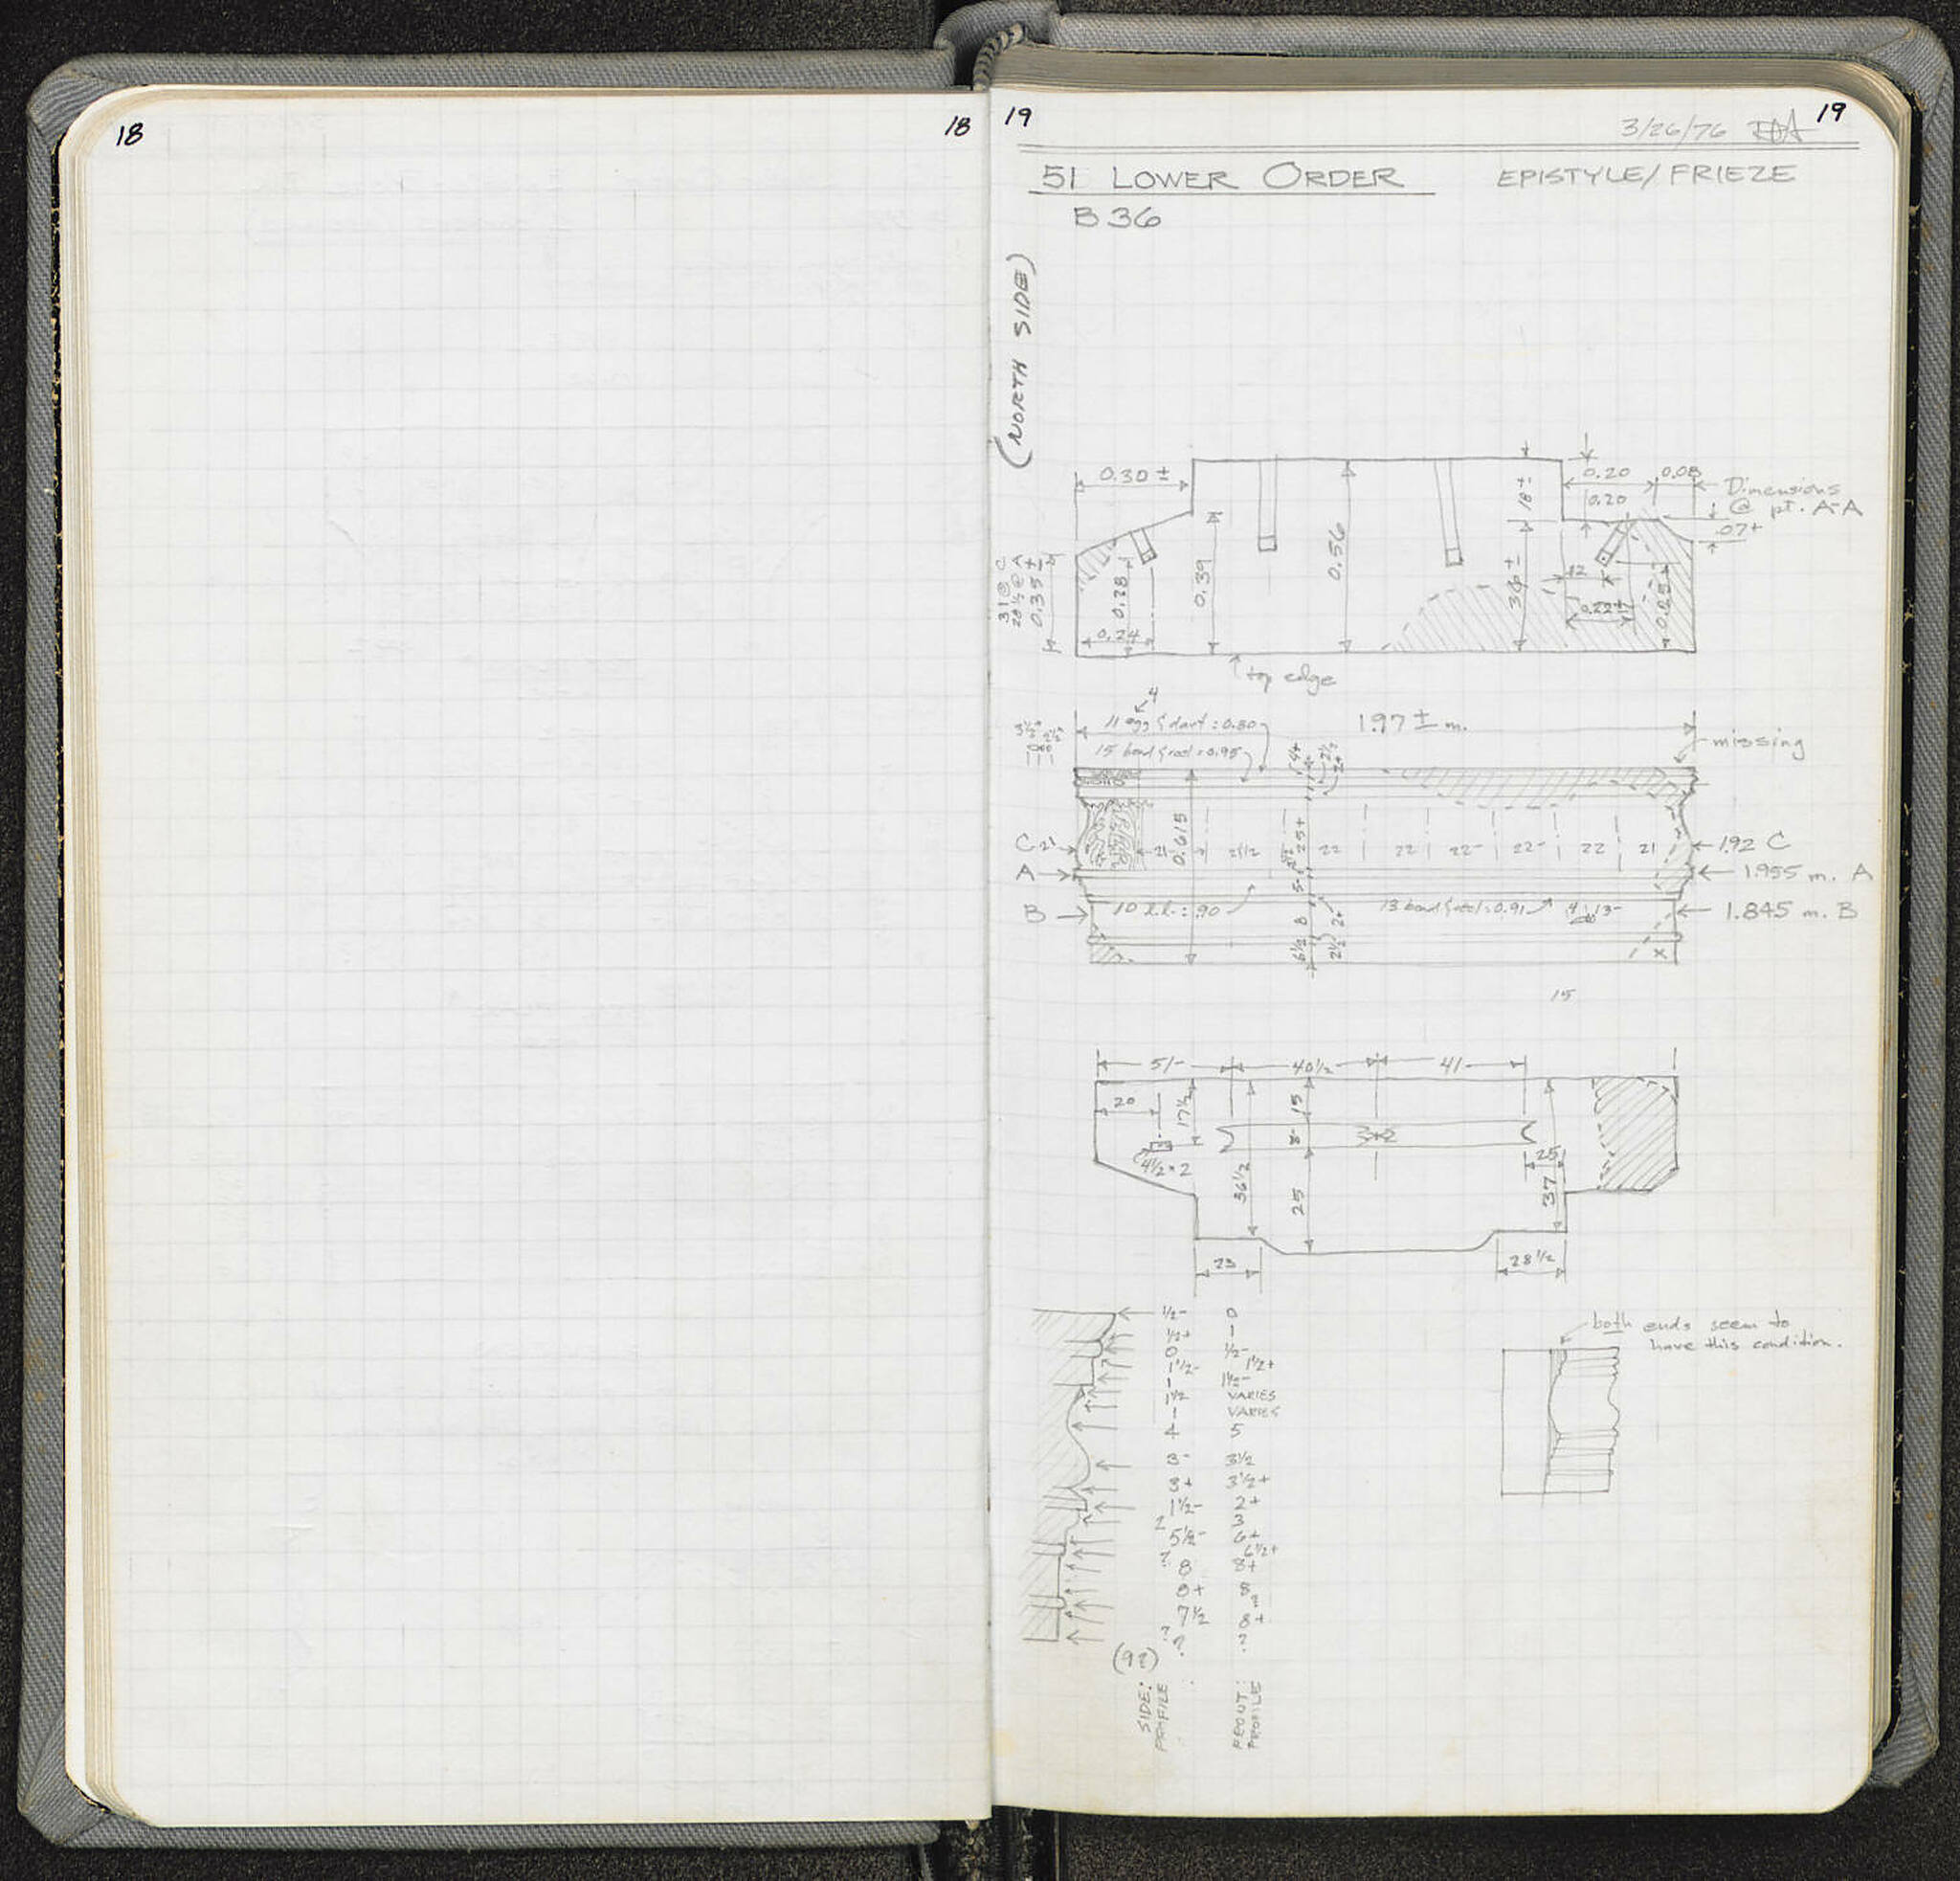 18
18
19
19
3/26/76
51 LOWER ORDER
EPISTYLE/FRIEZE
B 36
(NORTH SIDE)
0.30 ±
0.20
0.08
0.20
18 ±
Dimensions
@ pt. A-A
07+
31 @ C
28½ @ A
0.35 ±
0.28
0.24
0.39
0.56
36 ±
12
0.22±
0.25
top edge
4
11 egg & dart = 0.80
15 bead & reel = 0.95
1.97 ± m.
missing
4+
2½
2+
C
21
0.615
21½
25+
22
22
22-
22-
22
21
1.92 C
A
5-
1.955 m. A
B
10 l.l. = .90
8
2+
13 bead & reel = 0.91
4
13-
1.845 m. B
6½
2½
x
15
51-
40½
41
20
17½
15
8-
3×2
4½ × 2
36½
25
25
37
23
28½
½- 0
½+ -
0 ½-
1½- 1½+
- 1½-
1½ VARIES
- VARIES
4 5
3- 3½
3+ 3½+
1½- 2+
2 3
5½- 6+
? 6½+
8 8+
8+ 8
7½ 8+
? ? ?
(92)
SIDE:
PROFILE
FRONT:
PROFILE
both ends seem to
have this condition.